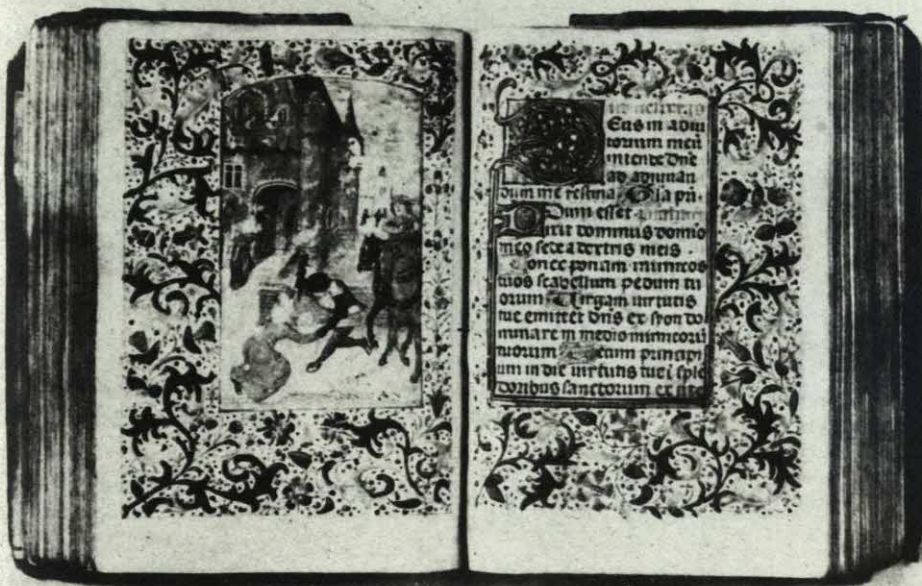 Eus in adiu
torium meu
intende Dne
ad adiuuan
dum me festina Gla pri.
Dum esset
Dixit dominus domio
meo sede a dextris meis
Donec ponam inimicos
tuos scabellum pedum tu
orum Virgam uirtutis
tue emittet dns ex syon do
minare in medio inimicorū
tuorum Tecum principi
um in die uirtutis tue ī sple
doribus sanctorum ex ute